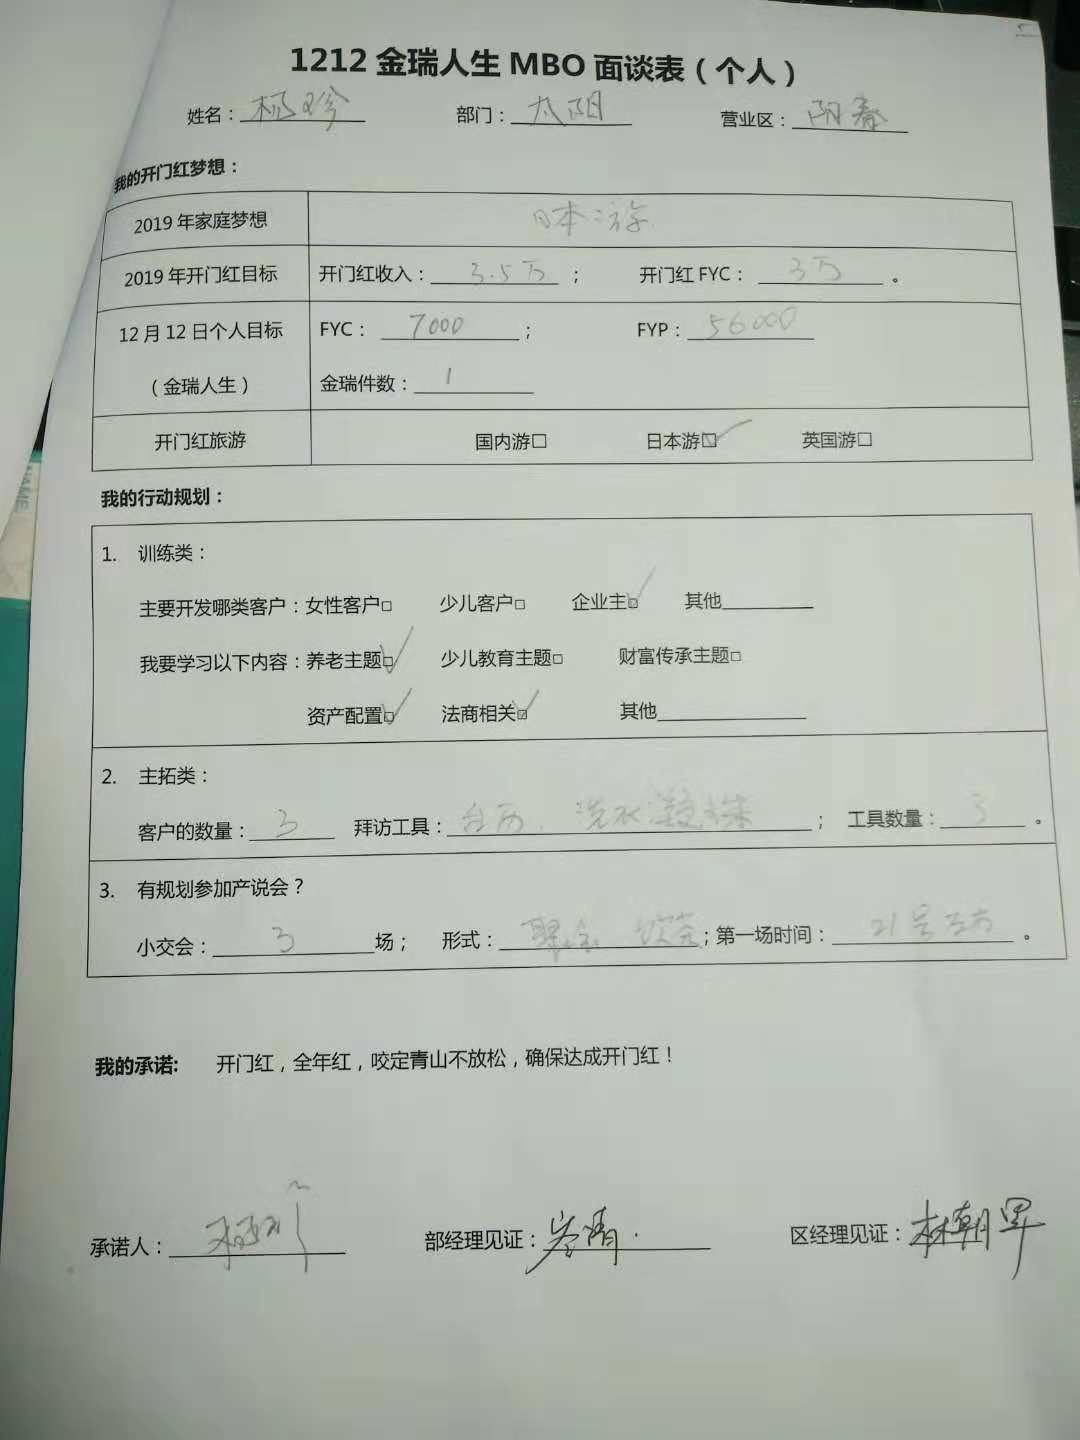 1212 金瑞人生 MBO 面谈表（个人）
姓名：杨珍 部门：太阳 营业区：阳春
我的开门红梦想：
2019 年家庭梦想 日本游
2019 年开门红目标 开门红收入：3.5万； 开门红 FYC：3万。
12 月 12 日个人目标 FYC：7000； FYP：56000
（金瑞人生） 金瑞件数：1
开门红旅游 国内游□ 日本游☑ 英国游□
我的行动规划：
1. 训练类：
主要开发哪类客户：女性客户□ 少儿客户□ 企业主☑ 其他
我要学习以下内容：养老主题☑ 少儿教育主题□ 财富传承主题□
资产配置☑ 法商相关☑ 其他
2. 主拓类：
客户的数量：3 拜访工具：台历、洗水凝珠； 工具数量：3。
3. 有规划参加产说会？
小交会：3场； 形式：聚会 ；第一场时间：21号左右。
我的承诺: 开门红，全年红，咬定青山不放松，确保达成开门红！
承诺人：杨珍 部经理见证：岑清 区经理见证：林朝军
NAME